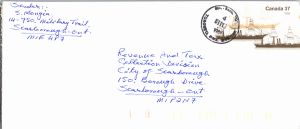 Sender:
S. Mongia
14-750, Military Trail,
Scarborough - Ont
M1E 4P7
Canada 37
Revenue And Tax
Collection Division
City of Scarborough
150, Borough Drive
Scarborough - Ont
M1P 2N7